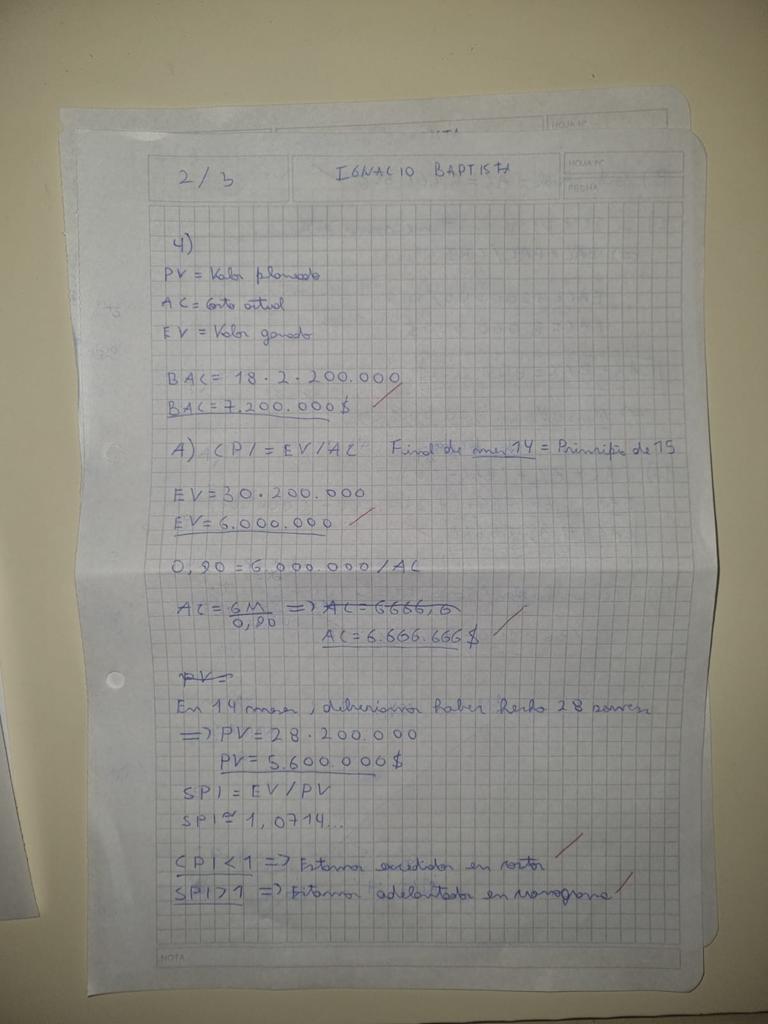 HOJA Nº
2/3
IGNACIO BAPTISTA
HOJA Nº
FECHA
4)
PV = Valor planeado
AC = Costo actual
EV = Valor ganado
BAC = 18 · 2 · 200.000
BAC = 7.200.000$
A) CPI = EV/AC Final de mes 14 = Principio de 15
EV = 30 · 200.000
EV = 6.000.000
0,90 = 6.000.000/AC
AC = 6M/0,90 => AC = 6666,6
AC = 6.666.666$
PV =
En 14 meses, deberíamos haber hecho 28
=> PV = 28 · 200.000
PV = 5.600.000$
SPI = EV/PV
SPI ≅ 1,0714...
CPI < 1 => Estamos excedidos en costos
SPI > 1 => Estamos adelantados en cronograma
NOTA